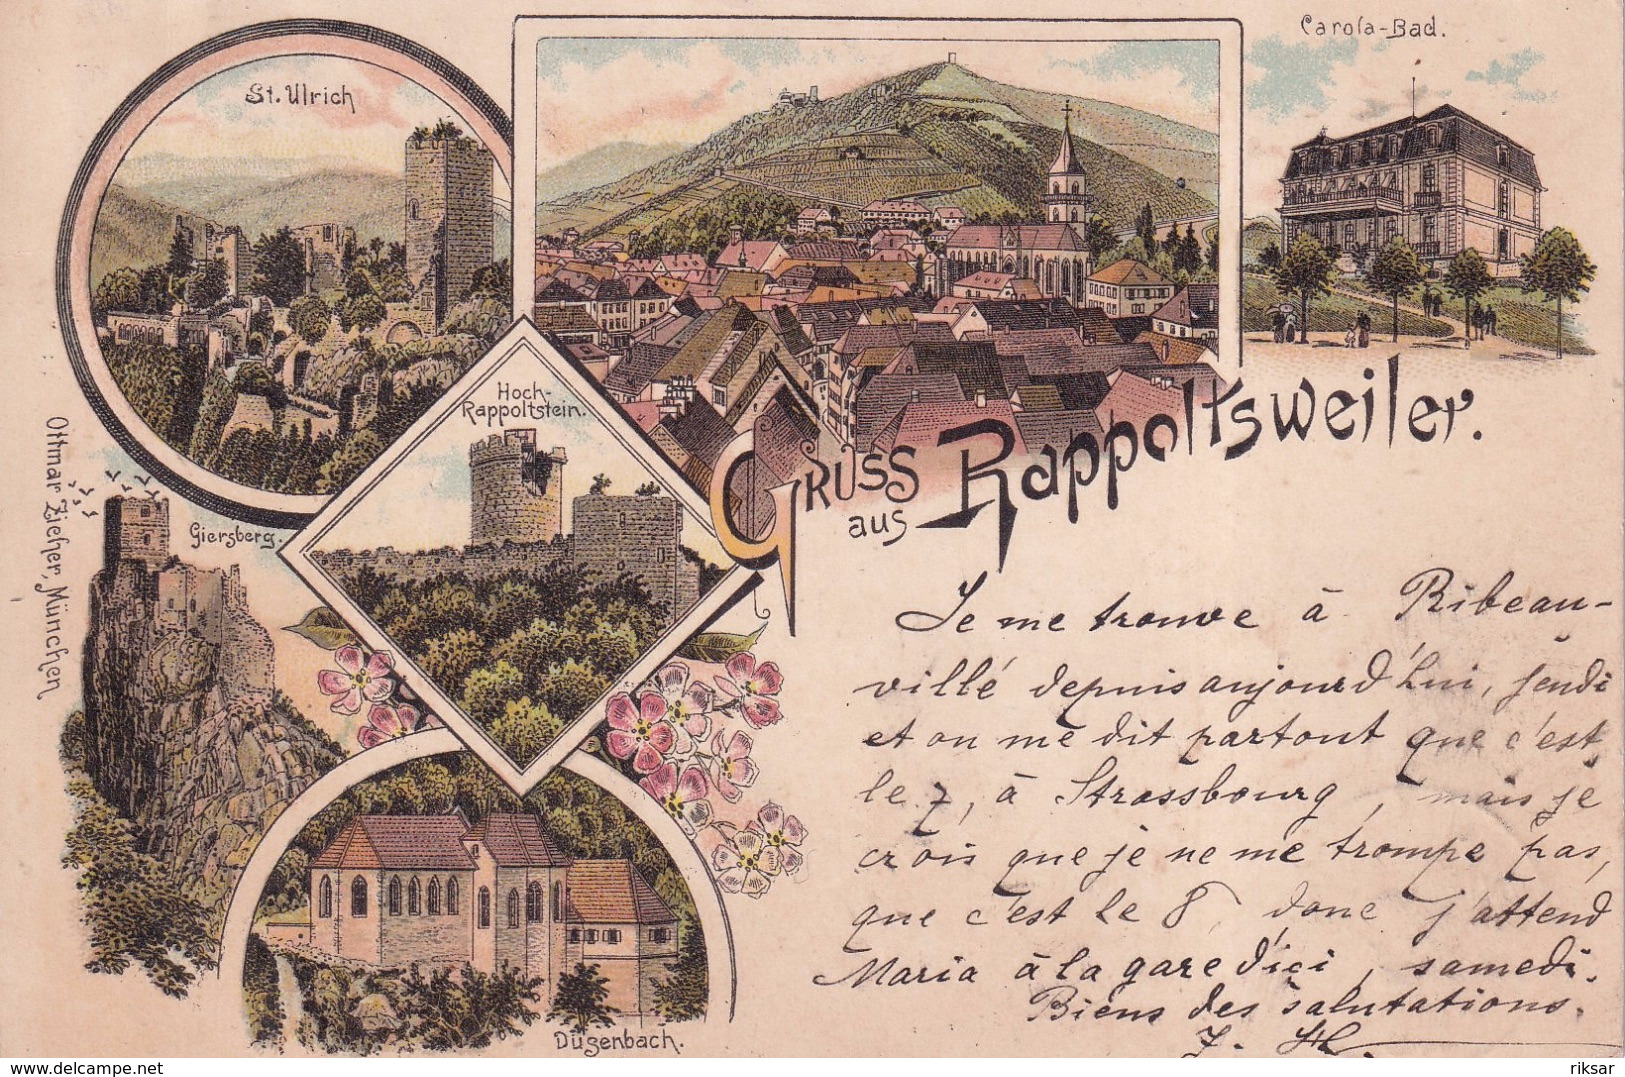 Carola-Bad.
St. Ulrich
Hoch-
Rappoltstein.
Giersberg.
Ottmar Zieher, München
Gruss
aus
Rappoltsweiler.
Düsenbach.
Je me trouve à Ribeau-
villé depuis aujourd'hui, jeudi
et on me dit partout que c'est
le 7, à Strassbourg, mais je
crois que je ne me trompe pas,
que c'est le 8, donc j'attend
Maria à la gare d'ici, samedi.
Biens des salutations.
J.
riksar